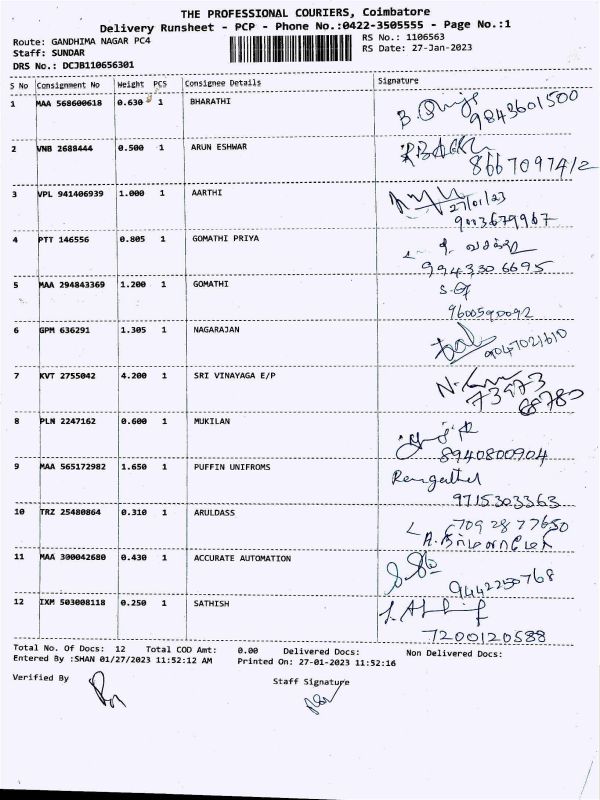 THE PROFESSIONAL COURIERS, Coimbatore
Delivery Runsheet - PCP - Phone No.:0422-3505555 - Page No.:1
Route: GANDHIMA NAGAR PC4 RS No.: 1106563
Staff: SUNDAR RS Date: 27-Jan-2023
DRS No.: DCJB110656301
S No Consignment No Weight PCS Consignee Details Signature
1 MAA 568600618 0.630 1 BHARATHI
9843601500
2 VNB 2688444 0.500 1 ARUN ESHWAR
3 VPL 941406939 1.000 1 AARTHI
27/01/23
9003679967
4 PTT 146556 0.805 1 GOMATHI PRIYA
994330 6695
5 MAA 294843369 1.200 1 GOMATHI
9600590092
6 GPM 636291 1.305 1 NAGARAJAN
9047021610
7 KVT 2755042 4.200 1 SRI VINAYAGA E/P
73973
68780
8 PLN 2247162 0.600 1 MUKILAN
8940800904
9 MAA 565172982 1.650 1 PUFFIN UNIFROMS
9715303363
10 TRZ 25480864 0.310 1 ARULDASS
709 28 77650
11 MAA 300042680 0.430 1 ACCURATE AUTOMATION
9442250768
12 IXM 503008118 0.250 1 SATHISH
7200120588
Total No. Of Docs: 12 Total COD Amt: 0.00 Delivered Docs: Non Delivered Docs:
Entered By :SHAN 01/27/2023 11:52:12 AM Printed On: 27-01-2023 11:52:16
Verified By Staff Signature